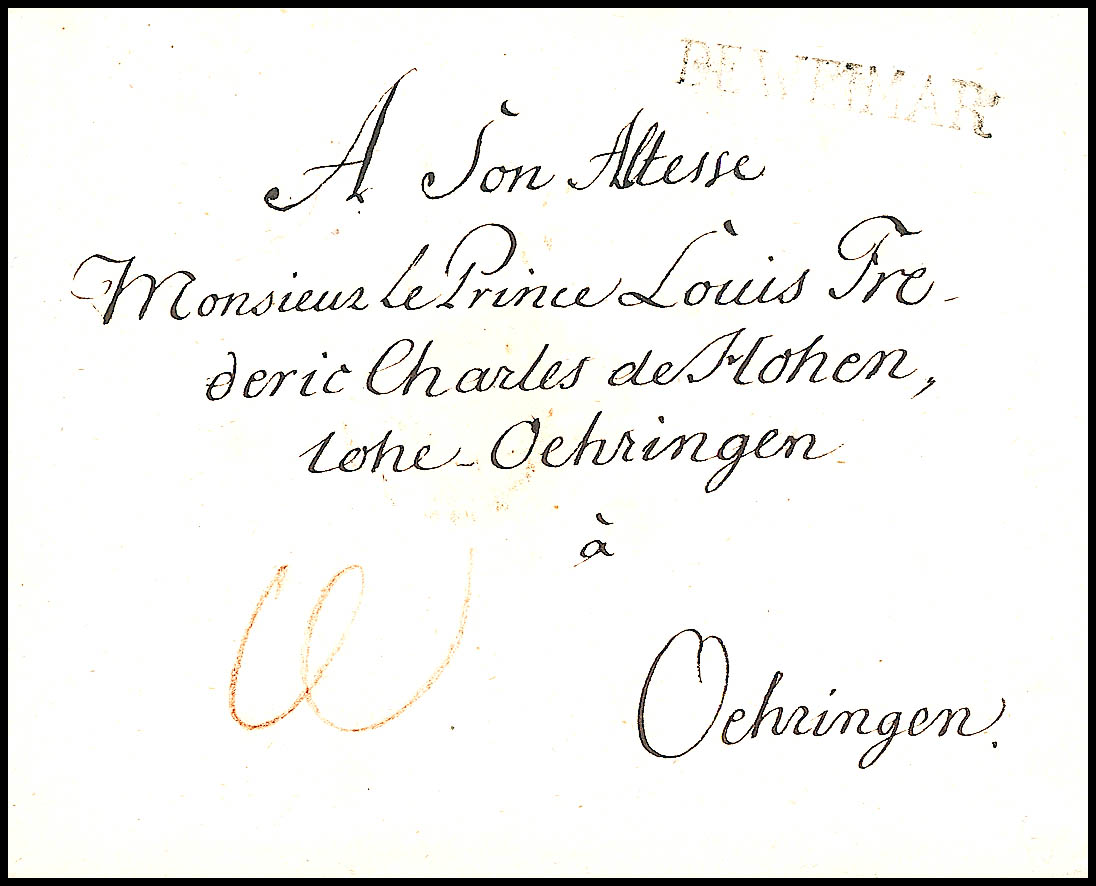 DE WEIMAR
A Son Altesse
Monsieur le Prince Louis Fre-
deric Charles de Hohen,
lohe-Oehringen
à
Oehringen.